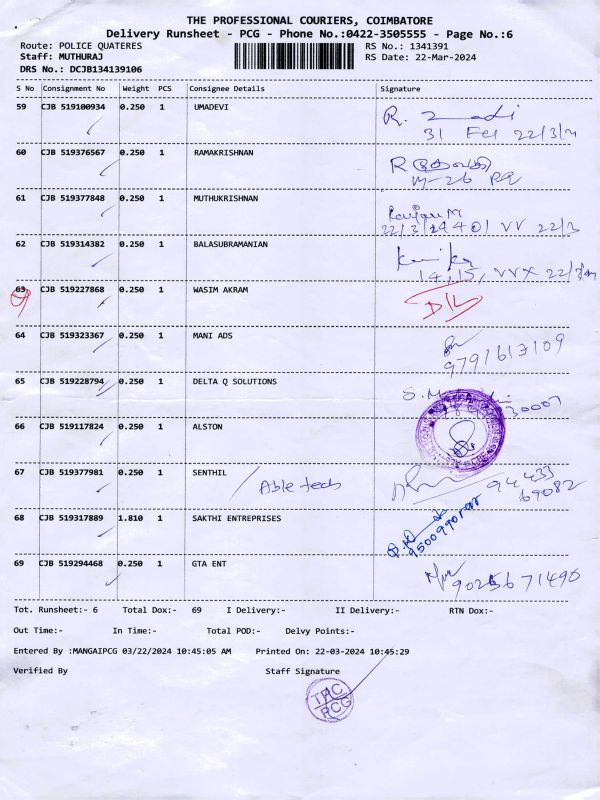 THE PROFESSIONAL COURIERS, COIMBATORE
Delivery Runsheet - PCG - Phone No.:0422-3505555 - Page No.:6
Route: POLICE QUATERES RS No.: 1341391
Staff: MUTHURAJ RS Date: 22-Mar-2024
DRS No.: DCJB134139106
S No Consignment No Weight PCS Consignee Details Signature
59 CJB 519100934 0.250 1 UMADEVI
22/3/
60 CJB 519376567 0.250 1 RAMAKRISHNAN
61 CJB 519377848 0.250 1 MUTHUKRISHNAN
22/3
62 CJB 519314382 0.250 1 BALASUBRAMANIAN
63 CJB 519227868 0.250 1 WASIM AKRAM
D/L
64 CJB 519323367 0.250 1 MANI ADS
9791613109
65 CJB 519228794 0.250 1 DELTA Q SOLUTIONS
66 CJB 519117824 0.250 1 ALSTON
67 CJB 519377981 0.250 1 SENTHIL / Able tech 94433
69082
68 CJB 519317889 1.810 1 SAKTHI ENTREPRISES
69 CJB 519294468 0.250 1 GTA ENT
9025671490
Tot. Runsheet:- 6 Total Dox:- 69 I Delivery:- II Delivery:- RTN Dox:-
Out Time:- In Time:- Total POD:- Delvy Points:-
Entered By :MANGAIPCG 03/22/2024 10:45:05 AM Printed On: 22-03-2024 10:45:29
Verified By Staff Signature
TPC
PCG